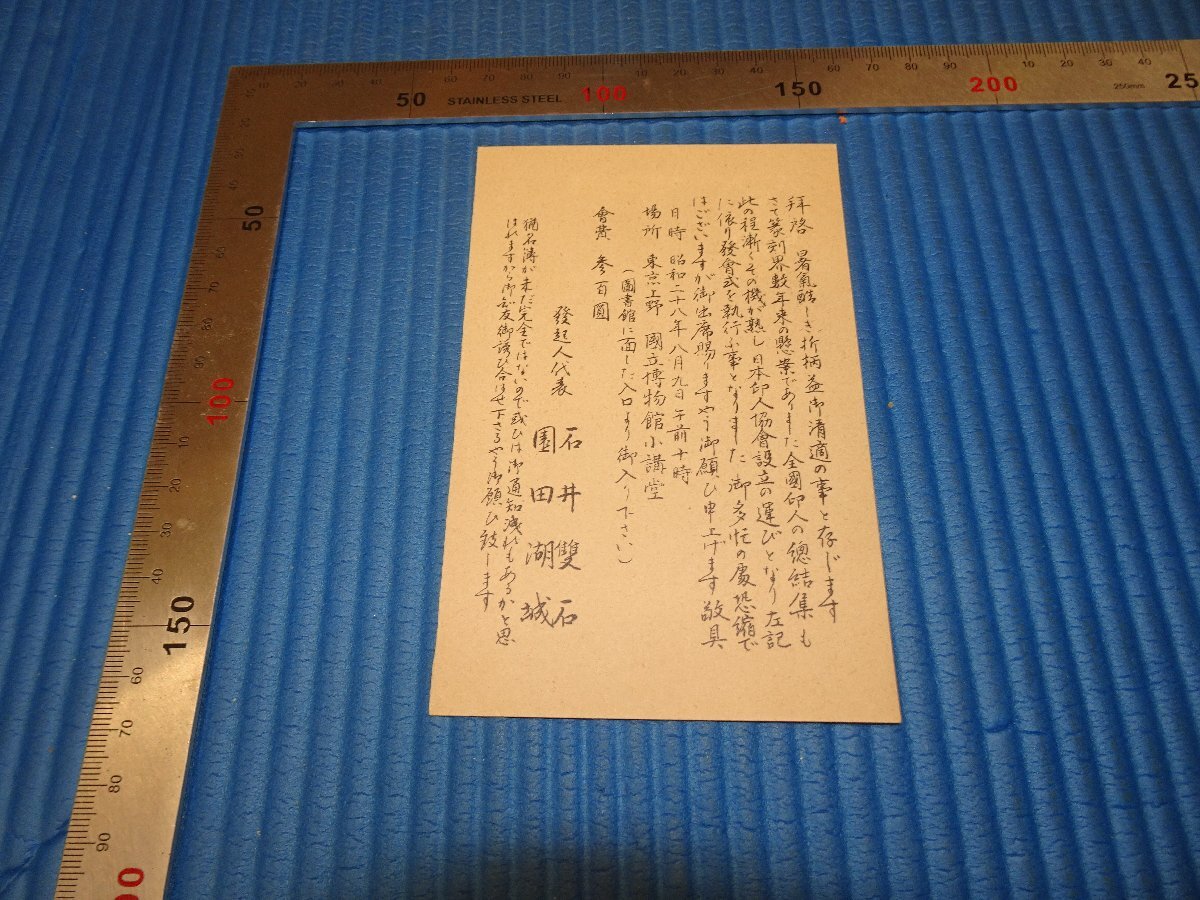 拝啓 暑氣酷しき折柄益御清適の事と存じます
さて篆刻界數年来の懸案でありました全國印人の總結集も
此の程漸くその機が熟し 日本印人協會設立の運びとなり左記
に依り發會式を執行ふ事となりました 御多忙の處恐縮で
はございますが御出席賜りますやう御願ひ申上げます 敬具
日時 昭和二十八年八月九日午前十時
場所 東京上野 國立博物館小講堂
(圖書館に面した入口より御入り下さい)
會費 参百圓
發起人代表 石井雙石
園田湖城
猶名簿が未だ完全ではないので或ひは御通知洩れもあるかと思
はれますから御知友御誘ひ合はせ下さるやう御願ひ致します
STAINLESS STEEL
50 100 150 200 250
250mm
50
100
150